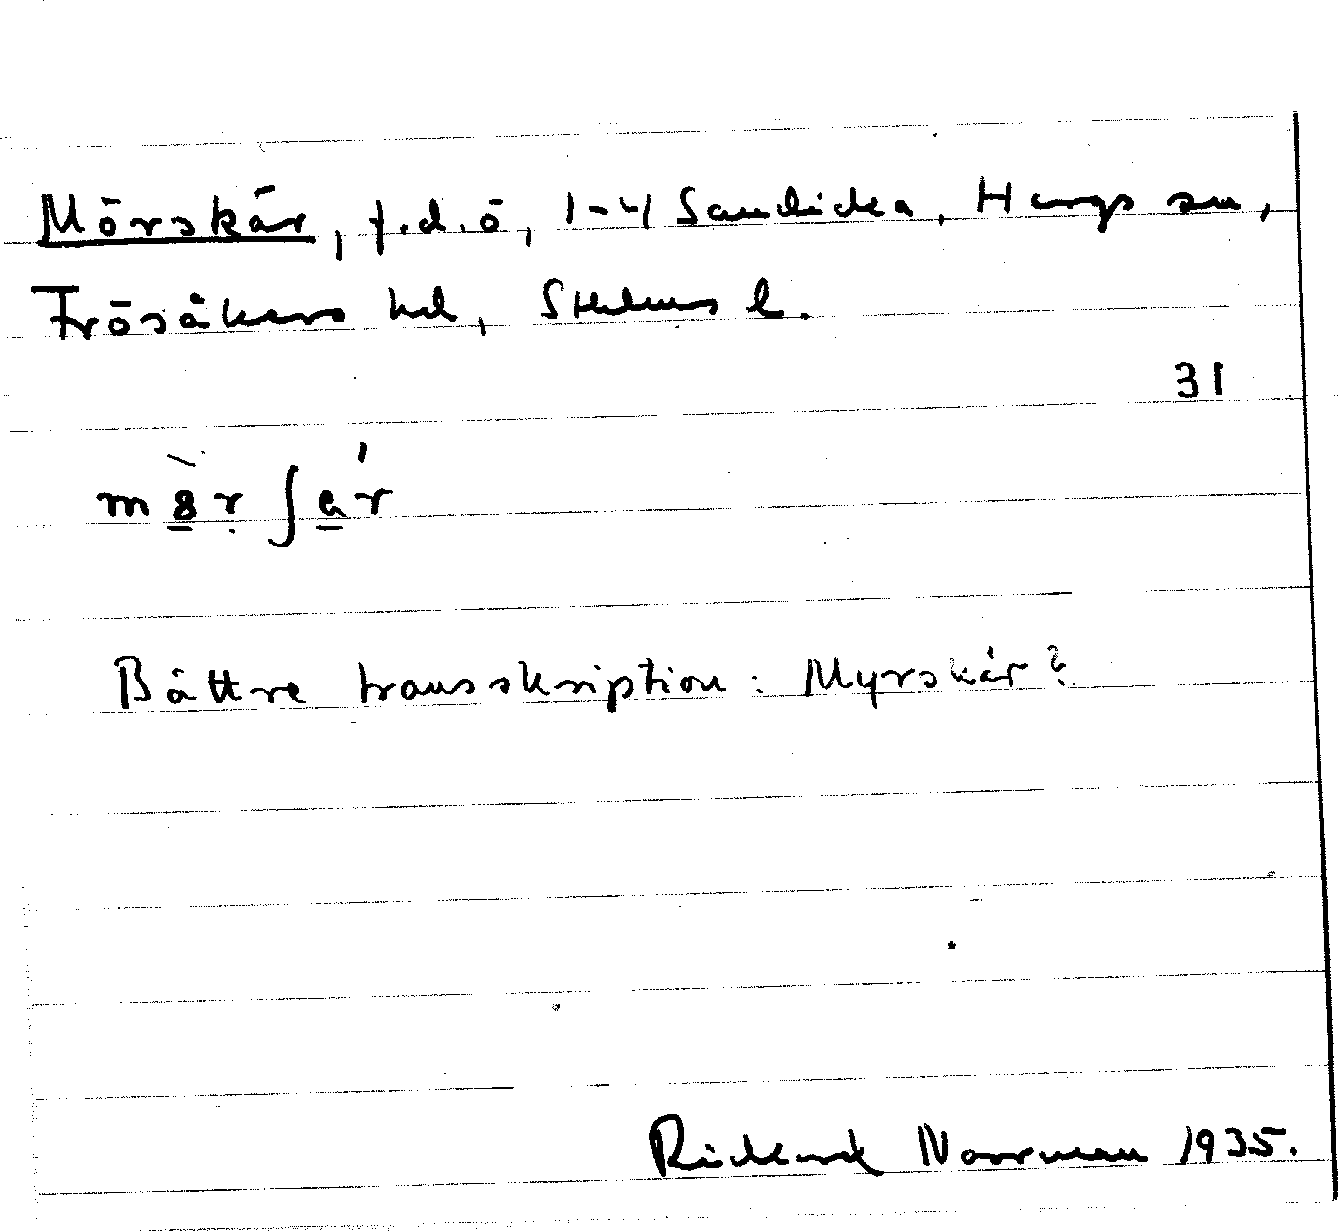 Mörskär, f.d.ö, 1-4 Sandicka, Hargs sn,
Frösåkers hd, Sthlms l.
31
m ʃ r
Bättre transskription: Myrskär?
Rickard Norrman 1935.